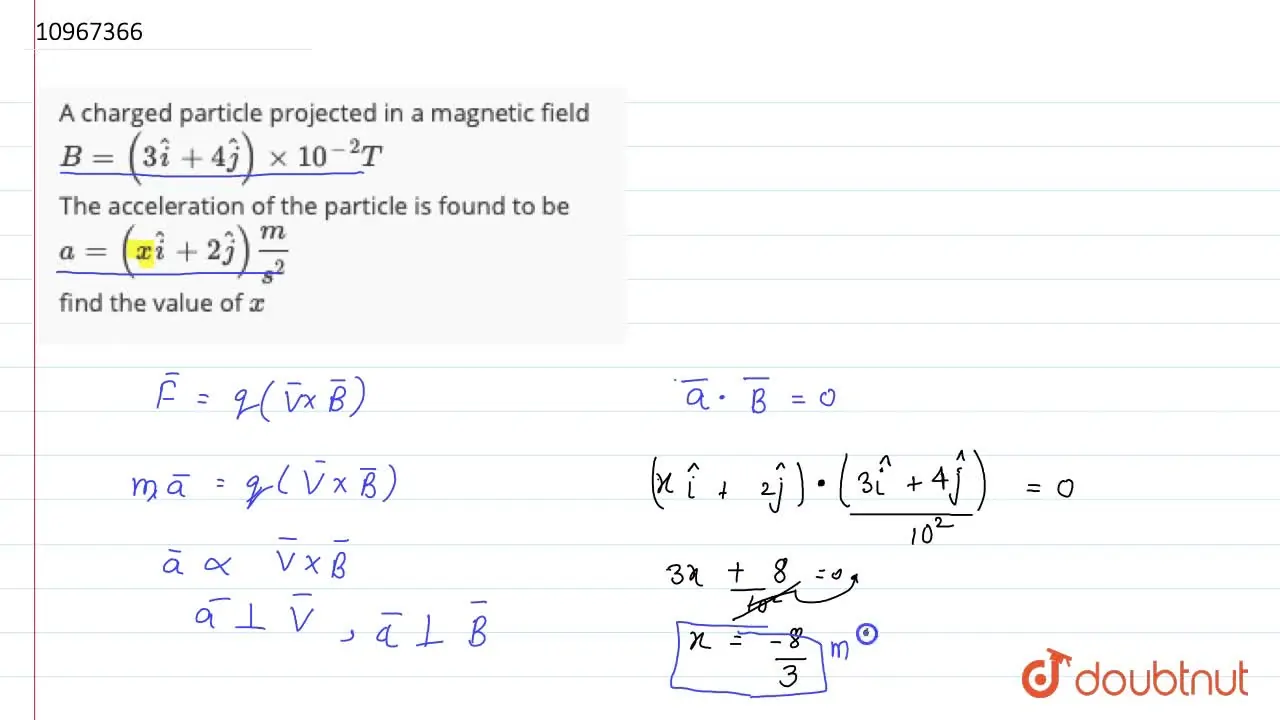 10967366
A charged particle projected in a magnetic field
B = (3î + 4ĵ) × 10⁻² T
The acceleration of the particle is found to be
a = (xî + 2ĵ) m/s²
find the value of x
F̄ = q(V̄ × B̄)
mā = q(V̄ × B̄)
ā ∝ V̄ × B̄
ā ⊥ V̄ , ā ⊥ B̄
ā · B̄ = 0
(xî + 2ĵ) · (3î + 4ĵ)/10² = 0
3x + 8/10² = 0
x = -8/3 m
doubtnut